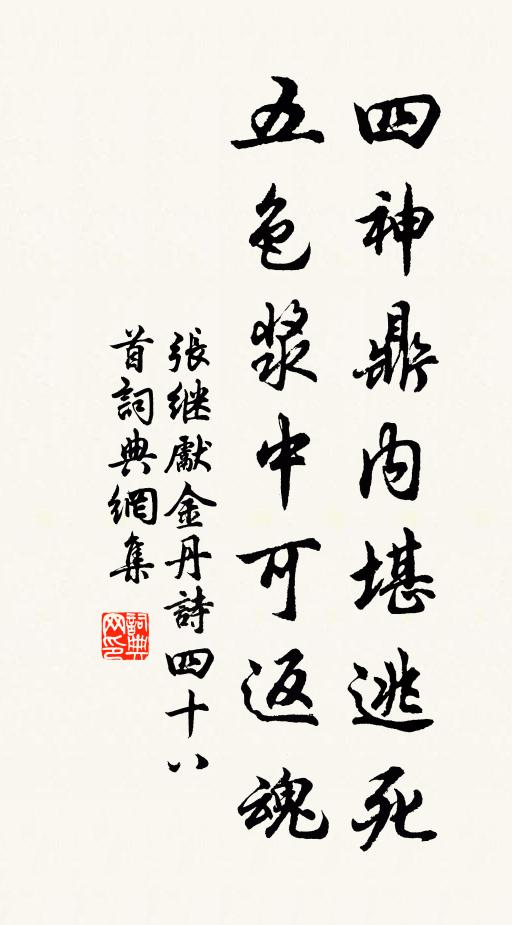 四神鼎内堪逃死
五色漿中可返魂
張继獻金丹詩四十八
首詞典網集
詞典
网印